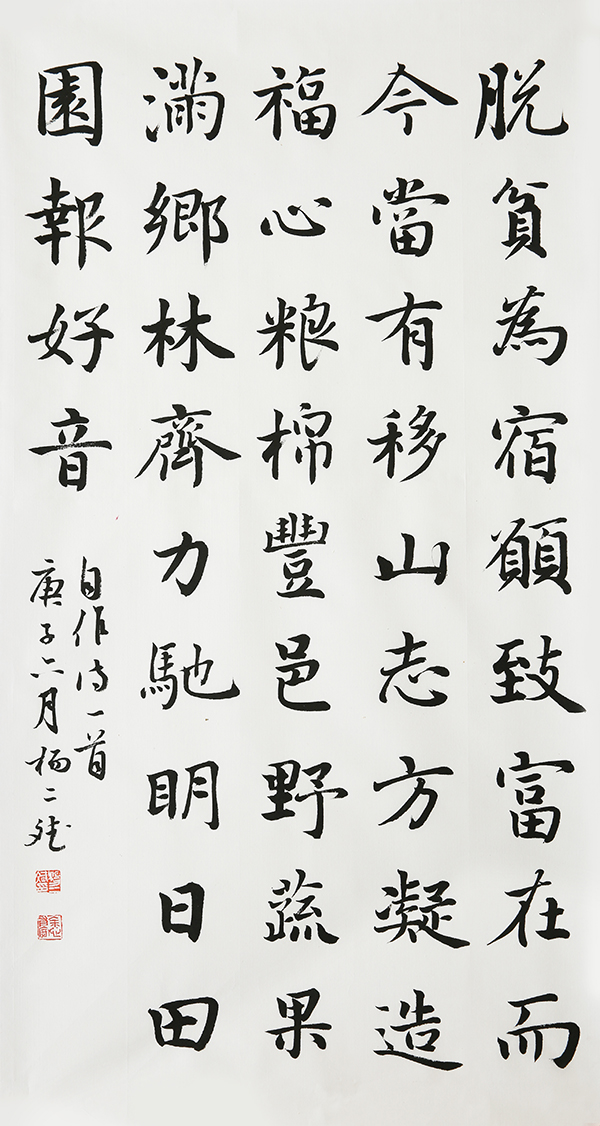 脱貧為宿願致富在而
今當有移山志方凝造
福心粮棉豐邑野蔬果
滿鄉林齊力馳明日田
園報好音
自作诗一首
庚子六月杨二斌